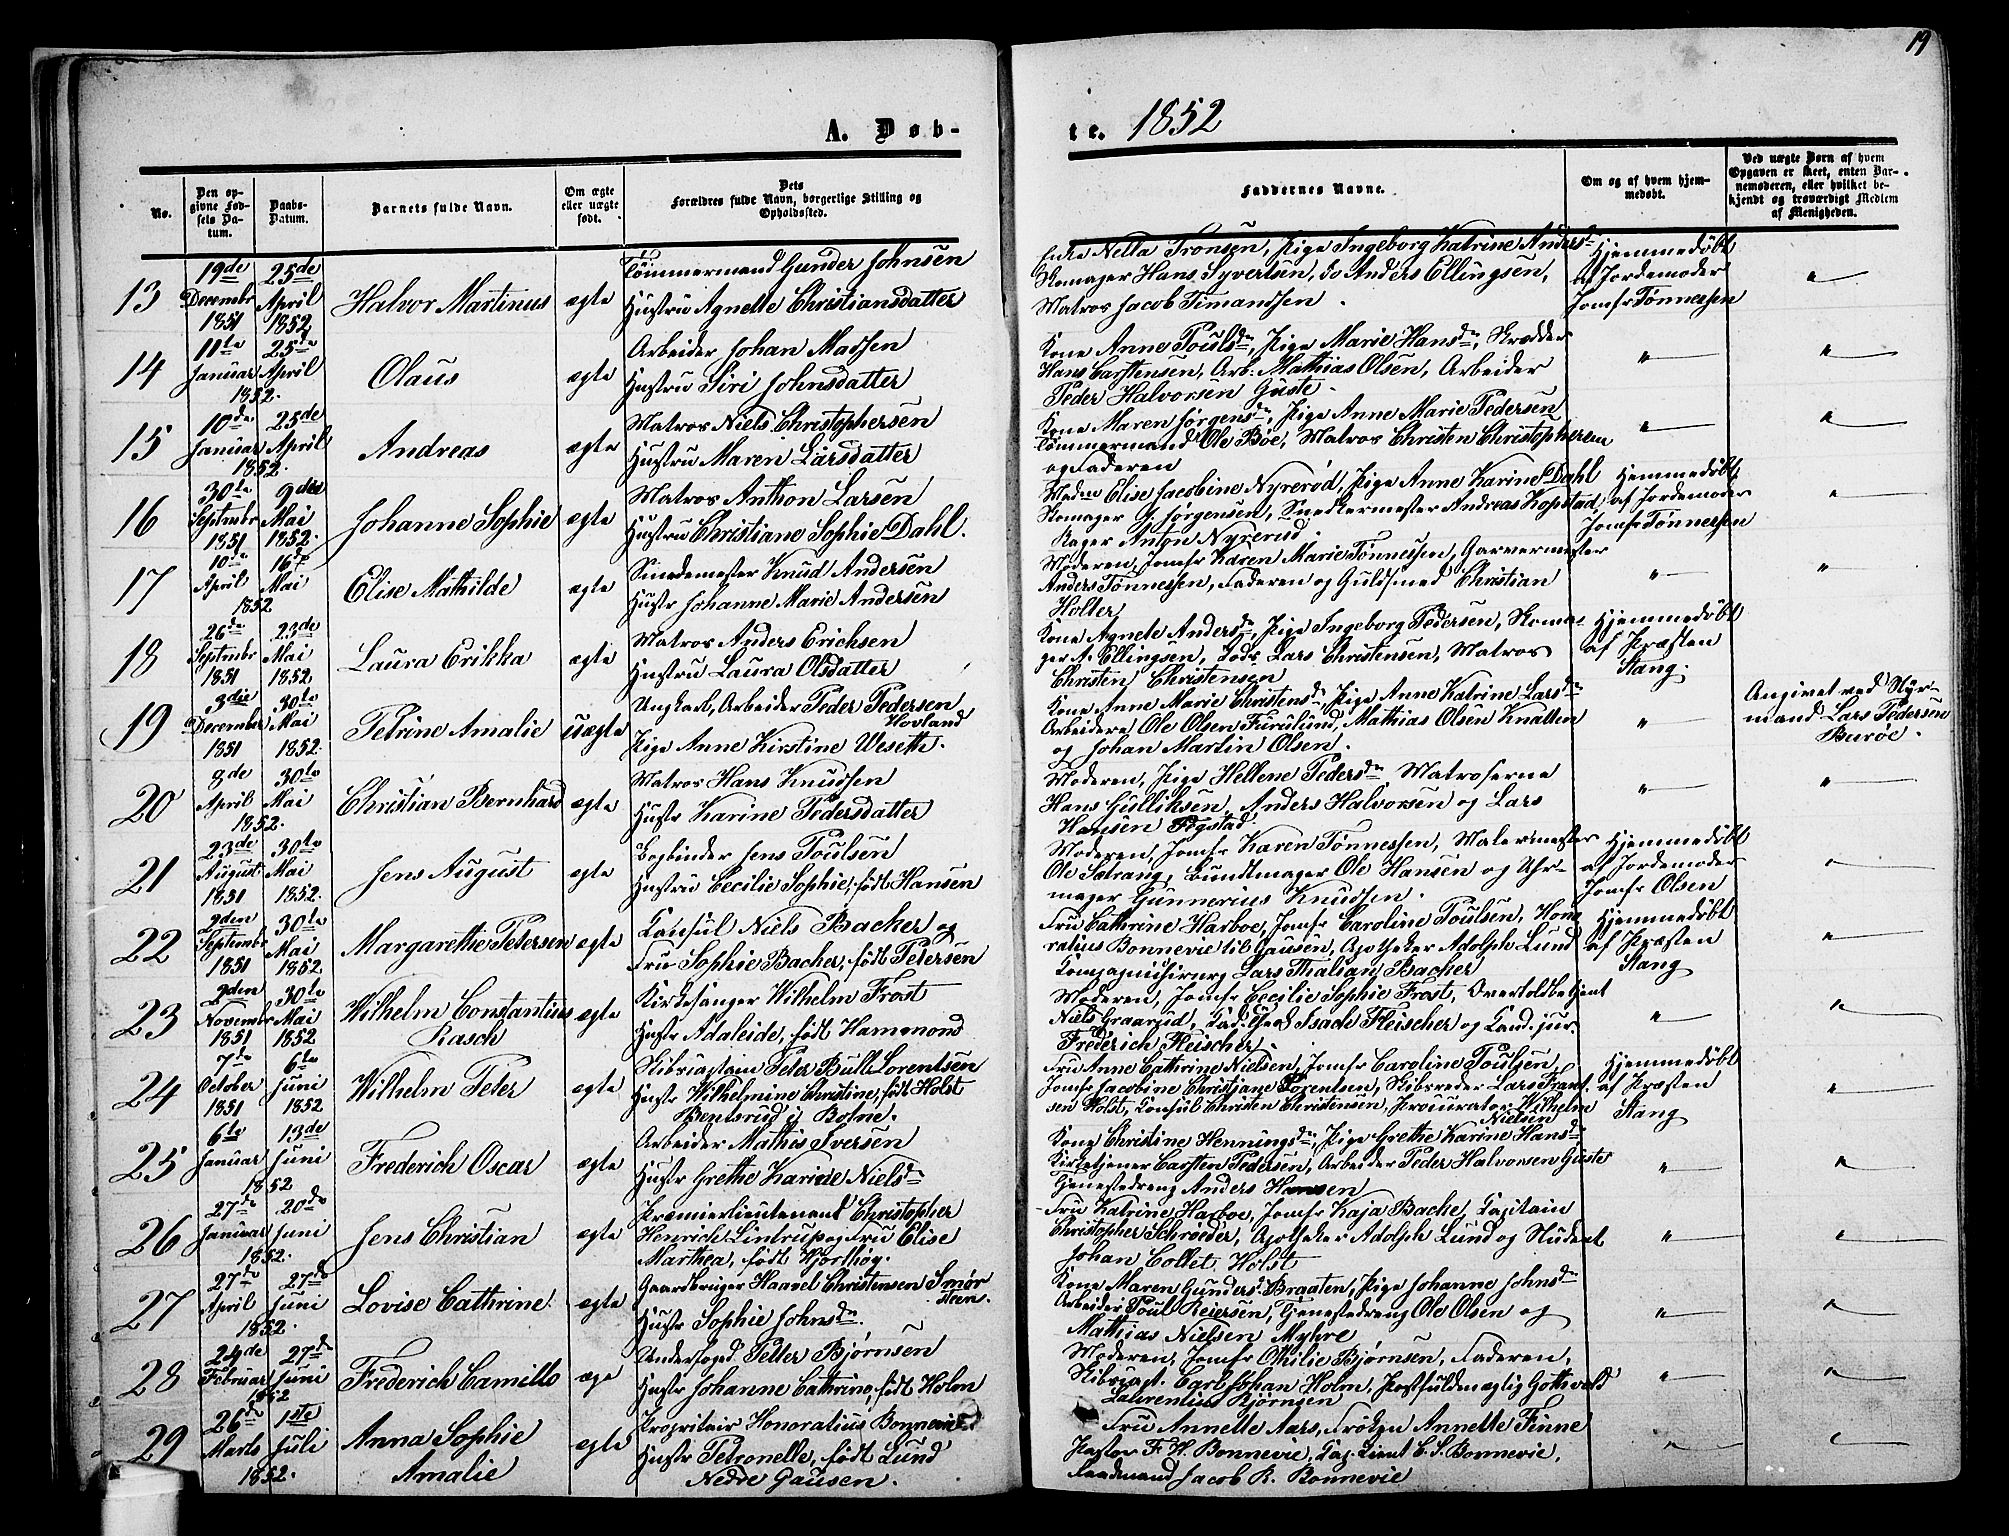 19
A. Døb-
te. 1852
No.
Den op-
givne Fød-
sels Da-
tum.
Daabs-
Datum.
Barnets fulde Navn.
Om ægte
eller uægte
født.
Dets
Forældres fulde Navn, borgerlige Stilling og
Opholdssted.
Faddernes Navne.
Om og af hvem hjem-
medøbt.
Ved uægte Børn af hvem
Opgaven er skeet, enten Bar-
nemoderen, eller hvilket be-
kjendt og troværdigt Medlem
af Menigheden.
13
19de
Decembr
1851
25de
April
1852
Halvor Martinus
ægte
Tømmermand Gunder Johnsen
Hustru Agnette Christiansdatter
Nella Tronsen, Pige Ingeborg Katrine Andersdr
Skomager Hans Syvertsen, do Anders Ellingsen,
Matros Jacob Timandsen.
Hjemmedøbt
af Jordemoder
Jomfr Tønnessen
"
14
11te
Januar
1852.
25de
April
Olaus
ægte
Arbeider Johan Madsen
Hustru Siri Johnsdatter
Kone Anne Poulsdr, Pige Marie Hansdr, Skrædder
Hans Carstensen, Arb. Mathias Olsen, Arbeider
Peder Halvorsen Guste.
"
"
15
10de
Januar
1852.
25de
April
Andreas
ægte
Matros Niels Christophersen
Hustru Maren Larsdatter
Kone Maren Jørgensdr, Pige Anne Marie Pedersen
Tømmermand Ole Bøe, Matros Christen Christophersen
og Faderen
"
"
16
30te
Septembr
1851
9die
Mai
1852.
Johanne Sophie
ægte
Matros Anthon Larsen
Hustru Christiane Sophie Dahl.
Madm Elise Jacobine Nyrerød, Pige Anne Karine Dahl
Skomager Jørgensen, Snedkermester Andreas Kopstad,
Bager Anton Nyrerud.
Hjemmedøbt
af Jordemoder
Jomfr Tønnessen
"
17
10de
April
1852
16de
Mai
Elise Mathilde
ægte
Smedemester Knud Andersen
Hustr Johanne Marie Andersen
Moderen, Jomfr Karen Marie Tønnessen, Garvermester
Anders Tønnessen, Faderen og Guldsmed Christian
Holter
"
"
18
26de
Septembr
1851
23de
Mai
1852.
Laura Erikka
ægte
Matros Anders Erichsen
Hustru Laura Olsdatter
Kone Agnete Andersdr, Pige Ingeborg Pedersen, Skoma-
ger A. Ellingsen, Lods Lars Christensen, Matros
Christen Christensen
Hjemmedøbt
af Præsten
Stang.
19
3die
December
1851
30te
Mai
1852.
Petrine Amalie
uægte
Ungkarl, Arbeider Peder Pedersen
Hovland
Pige Anne Kirstine Weseth.
Kone Anne Marie Christensdr, Pige Anne Katrine Larsdr
Arbeidere Ole Olsen Furulund, Mathias Olsen Knatten
og Johan Martin Olsen.
"
Angivet ved Styr-
mand Lars Pedersen
Burøe.
20
8de
April
1852.
30te
Mai
Christian Bernhard
ægte
Matros Hans Knudsen
Hustr Karine Pedersdatter
Moderen, Pige Hellene Pedersdr Matroserne
Hans Gulliksen, Anders Halvorsen og Lars
Hansen Fogstad
"
"
21
23de
August
1851
30te
Mai
1852.
Jens August
ægte
Bogbinder Jens Poulsen
Hustru Cecilie Sophie, født Hansen
Moderen, Jomfr Karen Tønnessen, Malermester
Ole Solrang, Bundtmager Ole Hansen og Uhr-
mager Gunnerius Knudsen.
Hjemmedøbt
af Jordemoder
Jomfr Olsen
"
22
2den
Septembr
1851
30te
Mai
1852.
Margarethe Petersen
ægte
Konsul Niels Backer og
Fru Sophie Backer, født Petersen
Fru Cathrine Harboe, Jomfr Caroline Poulsen, Hono
ratius Bonnevie til Gausen, Apotheker Adolph Lund
Kompagnichirurg Lars Thalian Backer
Hjemmedøbt
af Præsten
Stang
"
23
2den
Novembr
1851
30te
Mai
1852
Wilhelm Constantius
Rasch
ægte
Kirkesanger Wilhelm Frost
Hustr Adaleide, født Hammond
Moderen, Jomfr Cecilie Sophie Frost, Overtoldbetjent
Niels Graarud, Isach Fleischer og Cand. jur.
Frederich Fleischer.
"
"
24
7de
October
1851
6te
Juni
1852
Wilhelm Peter
ægte
Skibscaptain Peter Bull Lorentsen
Hustr Wilhelmine Christine, født Holst
Bentsrud i Botne.
Fru Anne Cathrine Nielsen, Jomfr Caroline Poulsen
Jomfr Jacobine Christiane Lorentsen, Skibsreder Lars Frant-
sen Holst, Konsul Christen Christensen, Procurator Wilhelm
Nielsen
Hjemmedøbt
af Præsten
Stang
"
25
6te
Januar
1852
13de
Juni
Frederich Oscar
ægte
Arbeider Mathis Iversen
Hustr Grethe Karine Nielsdr
Kone Christine Henningsdr, Pige Grethe Karine Hansdr,
Kirketjener Carsten Pedersen, Arbeider Peder Halvorsen Guste
Tjenestedreng Anders Hansen
"
"
26
27de
Januar
1852.
20de
Juni
Jens Christian
ægte
Premierlieutenant Christopher
Henrich Lintrup og Fru Elise
Marthea, født Hjorthøg.
Fru Katrine Harboe, Jomfr Kaja Backe, Capitain
Christopher Schrøeder, Apotheker Adolph Lund og Student
Johan Collet Holst
"
"
27
27de
April
1852.
27de
Juni
Lovise Cathrine
ægte
Gaardbruger Haavel Christensen Smør
steen.
Hustr Sophie Johnsdr.
Kone Maren Gundersdr. Braaten, Pige Johanne Johnsdr
Arbeider Poul Reiersen, Tjenestedreng Ole Olsen og
Mathias Nielsen Myhre
"
"
28
24de
Februar
1852
27de
Juni
Frederich Camillo
æge
Underfoged Petter Bjørnsen
Hustr Johanne Cathrine, født Holm
Moderen, Jomfr Othilie Bjørnsen, Faderen,
Skibscapt. Carl Johan Holm, Postfuldmægtig Gottwald
Laurentius Bjørnsen
"
"
29
26de
Marts
1852.
1ste
Juli
Anna Sophie
Amalie
ægte
Proprietair Honoratius Bonnevie
Hustr Petronelle, født Lund
Nedre Gausen.
Fru Annette Aars, Frøken Annette Finne
Pastor F. H. Bonnevie, Cap. Lieut C. S. Bonnevie,
Landmand Jacob R. Bonnevie
"
"